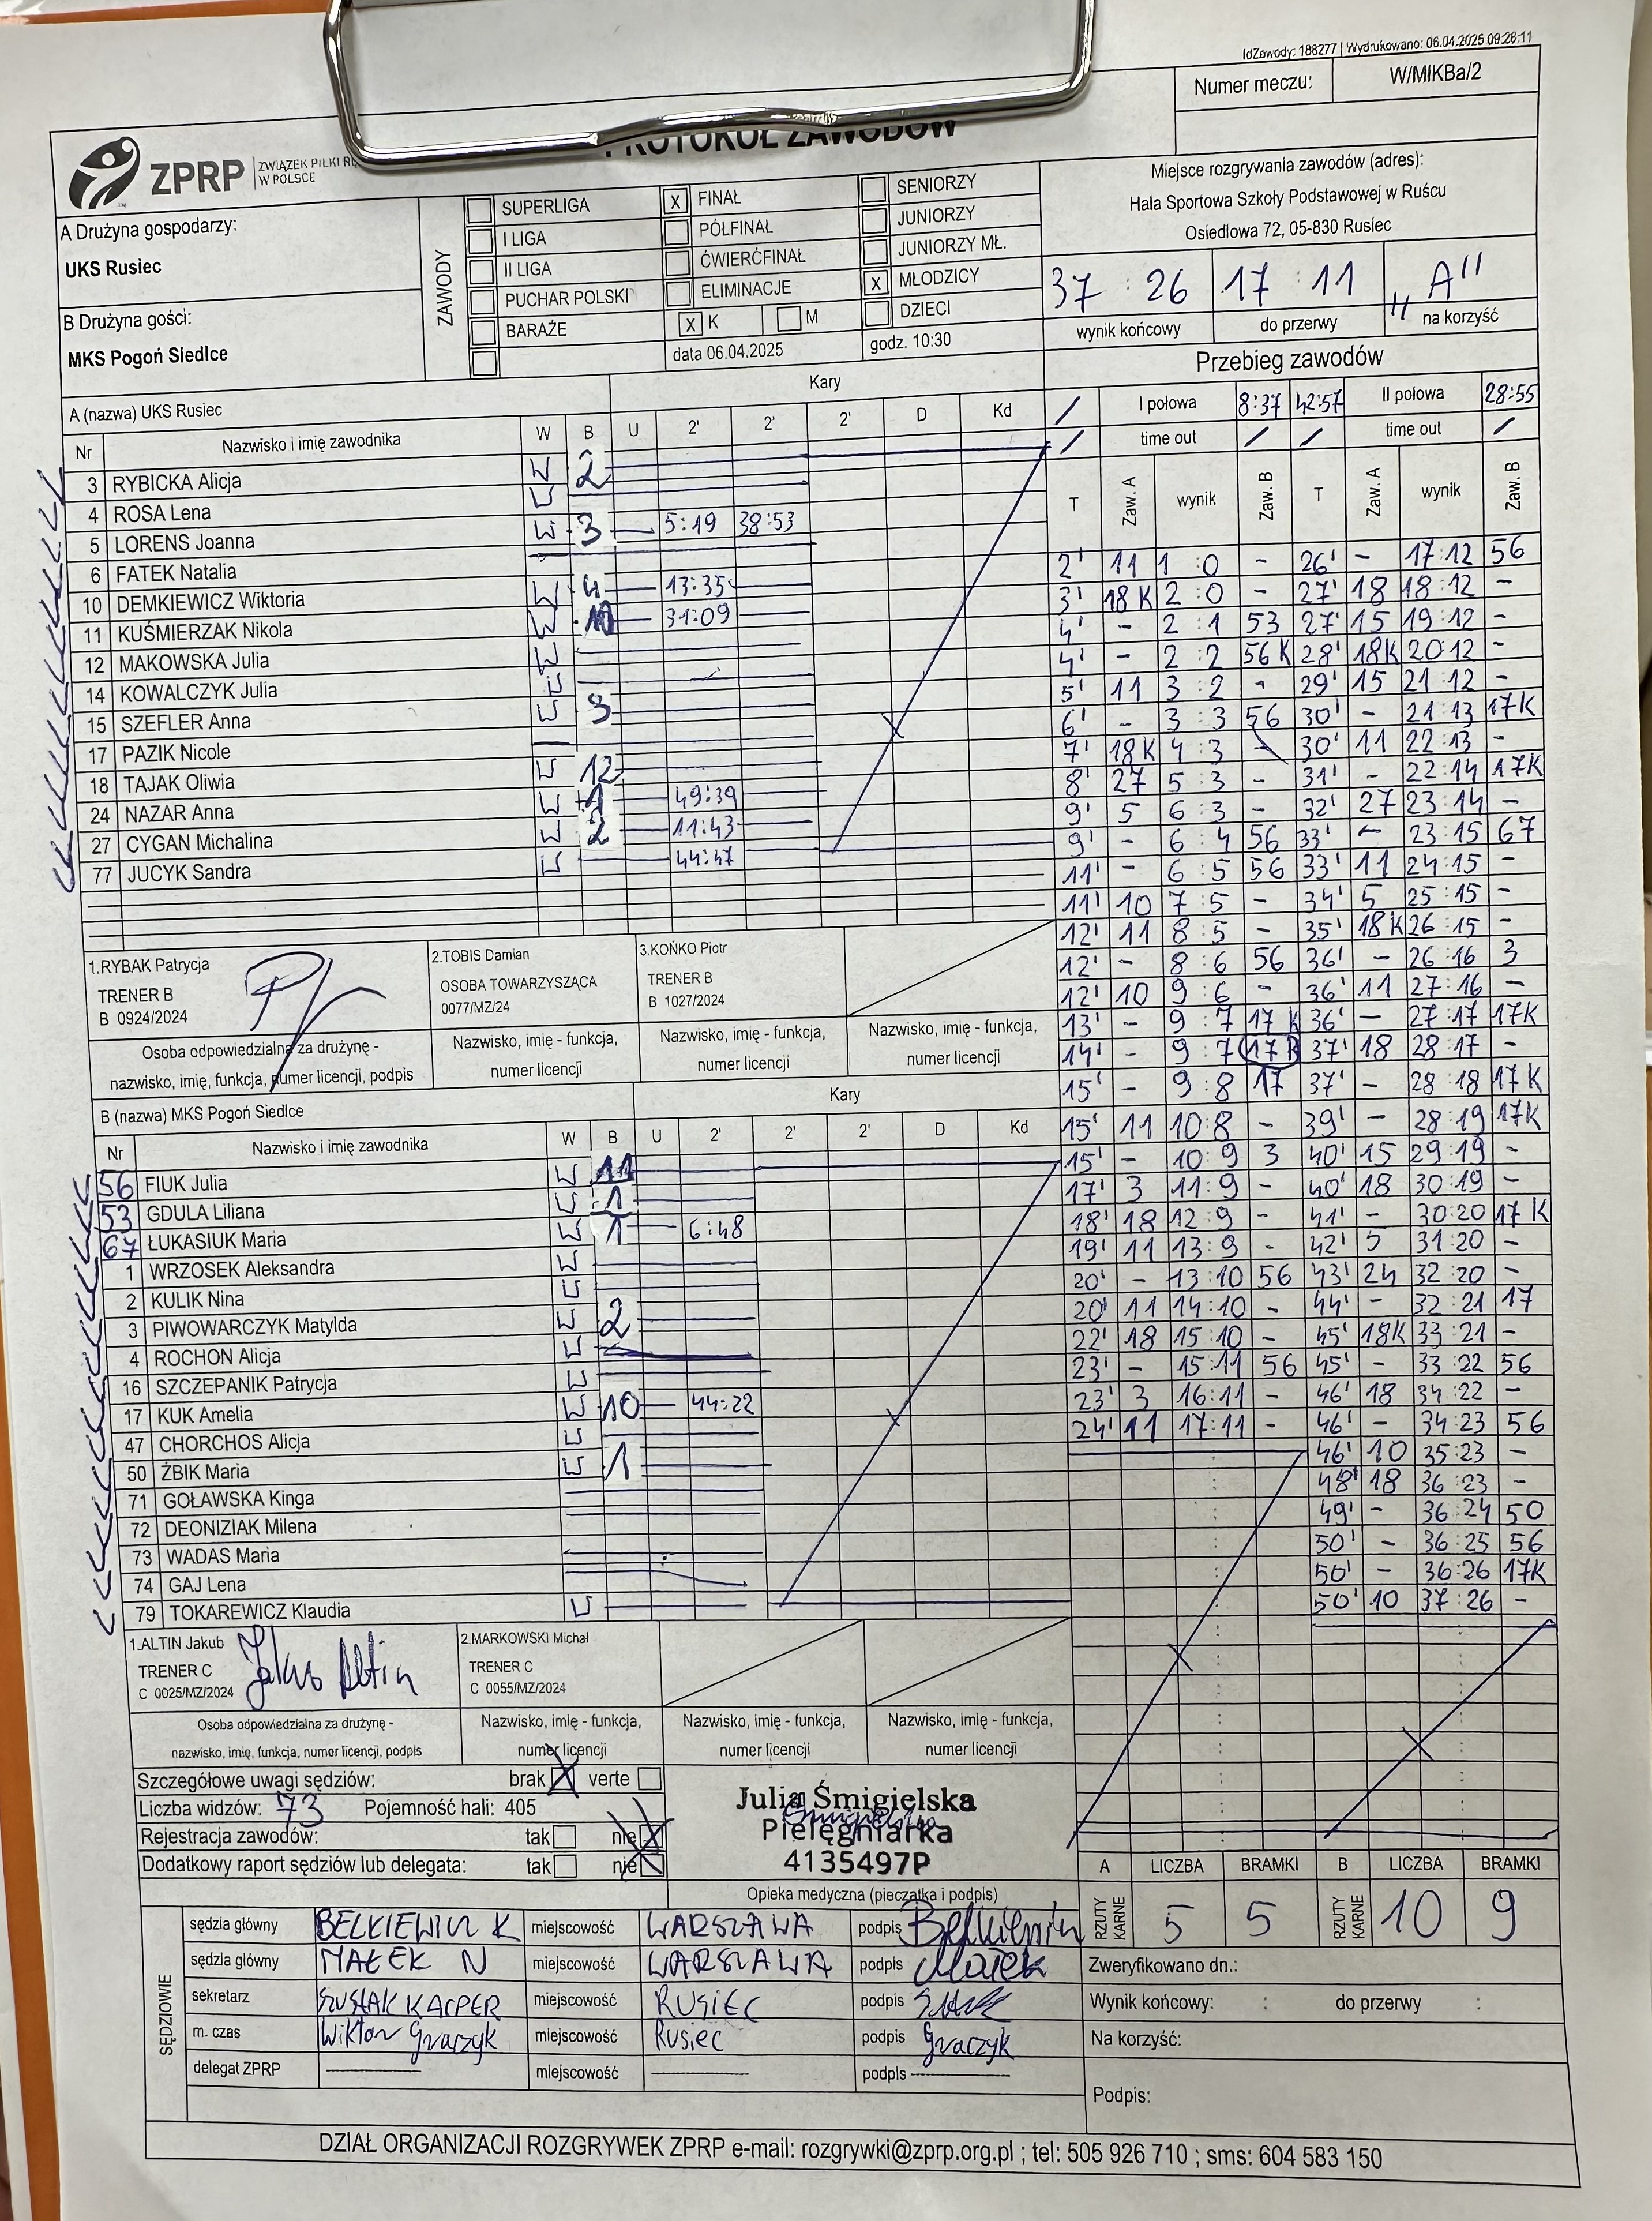 IdZawody: 188277 | Wydrukowano: 06.04.2025 09:28:11
Numer meczu: W/MIKBa/2
PROTOKÓŁ ZAWODÓW
ZPRP ZWIĄZEK PIŁKI RĘ
W POLSCE
Miejsce rozgrywania zawodów (adres):
Hala Sportowa Szkoły Podstawowej w Ruścu
Osiedlowa 72, 05-830 Rusiec
A Drużyna gospodarzy:
UKS Rusiec
B Drużyna gości:
MKS Pogoń Siedlce
ZAWODY
SUPERLIGA X FINAŁ SENIORZY
I LIGA PÓŁFINAŁ JUNIORZY
II LIGA ĆWIERĆFINAŁ JUNIORZY MŁ.
PUCHAR POLSKI ELIMINACJE X MŁODZICY
BARAŻE X K M DZIECI
data 06.04.2025 godz. 10:30
37 : 26 17 : 11 „A"
wynik końcowy do przerwy na korzyść
Przebieg zawodów
/ I połowa 8:37 42:57 II połowa 28:55
/ time out / / time out /
T Zaw. A wynik Zaw. B T Zaw. A wynik Zaw. B
A (nazwa) UKS Rusiec Kary
Nr Nazwisko i imię zawodnika W B U 2' 2' 2' D Kd
3 RYBICKA Alicja W 2
4 ROSA Lena W
5 LORENS Joanna W 3 5:19 38:53
6 FATEK Natalia
10 DEMKIEWICZ Wiktoria W 4 13:35
11 KUŚMIERZAK Nikola W 10 31:09
12 MAKOWSKA Julia W
14 KOWALCZYK Julia W
15 SZEFLER Anna W 3
17 PAZIK Nicole
18 TAJAK Oliwia W 12
24 NAZAR Anna W 1 49:39
27 CYGAN Michalina W 2 11:43
77 JUCYK Sandra W 44:47
1.RYBAK Patrycja
TRENER B
B 0924/2024
2.TOBIS Damian
OSOBA TOWARZYSZĄCA
0077/MZ/24
3.KOŃKO Piotr
TRENER B
B 1027/2024
Osoba odpowiedzialna za drużynę -
nazwisko, imię, funkcja, numer licencji, podpis
Nazwisko, imię - funkcja,
numer licencji
Nazwisko, imię - funkcja,
numer licencji
Nazwisko, imię - funkcja,
numer licencji
B (nazwa) MKS Pogoń Siedlce Kary
Nr Nazwisko i imię zawodnika W B U 2' 2' 2' D Kd
56 FIUK Julia W 11
53 GDULA Liliana W 1
67 ŁUKASIUK Maria W 1 6:48
1 WRZOSEK Aleksandra W
2 KULIK Nina W
3 PIWOWARCZYK Matylda W 2
4 ROCHON Alicja W
16 SZCZEPANIK Patrycja W
17 KUK Amelia W 10 44:22
47 CHORCHOS Alicja W
50 ŻBIK Maria W 1
71 GOŁAWSKA Kinga
72 DEONIZIAK Milena
73 WADAS Maria
74 GAJ Lena
79 TOKAREWICZ Klaudia W
1.ALTIN Jakub
TRENER C
C 0025/MZ/2024
Jakub Altin
2.MARKOWSKI Michał
TRENER C
C 0055/MZ/2024
Osoba odpowiedzialna za drużynę -
nazwisko, imię, funkcja, numer licencji, podpis
Nazwisko, imię - funkcja,
numer licencji
Nazwisko, imię - funkcja,
numer licencji
Nazwisko, imię - funkcja,
numer licencji
2' 11 1 : 0 - 26' - 17:12 56
3' 18K 2 : 0 - 27' 18 18:12 -
4' - 2 : 1 53 27' 15 19:12 -
4' - 2 : 2 56K 28' 18K 20:12 -
5' 11 3 : 2 - 29' 15 21:12 -
6' - 3 : 3 56 30' - 21:13 17K
7' 18K 4 : 3 - 30' 11 22:13 -
8' 27 5 : 3 - 31' - 22:14 17K
9' 5 6 : 3 - 32' 27 23:14 -
9' - 6 : 4 56 33' - 23:15 67
11' - 6 : 5 56 33' 11 24:15 -
11' 10 7 : 5 - 34' 5 25:15 -
12' 11 8 : 5 - 35' 18K 26:15 -
12' - 8 : 6 56 36' - 26:16 3
12' 10 9 : 6 - 36' 11 27:16 -
13' - 9 : 7 17K 36' - 27:17 17K
14' - 9 : 7 17K 37' 18 28:17 -
15' - 9 : 8 17 37' - 28:18 17K
15' 11 10:8 - 39' - 28:19 17K
15' - 10:9 3 40' 15 29:19 -
17' 3 11:9 - 40' 18 30:19 -
18' 18 12:9 - 41' - 30:20 17K
19' 11 13:9 - 42' 5 31:20 -
20' - 13:10 56 43' 24 32:20 -
20' 11 14:10 - 44' - 32:21 17
22' 18 15:10 - 45' 18K 33:21 -
23' - 15:11 56 45' - 33:22 56
23' 3 16:11 - 46' 18 34:22 -
24' 11 17:11 - 46' - 34:23 56
46' 10 35:23 -
48' 18 36:23 -
49' - 36:24 50
50' - 36:25 56
50' - 36:26 17K
50' 10 37:26 -
Szczegółowe uwagi sędziów: brak X verte
Liczba widzów: 73 Pojemność hali: 405
Rejestracja zawodów: tak nie X
Dodatkowy raport sędziów lub delegata: tak nie X
Julia Śmigielska
Pielęgniarka
4135497P
Opieka medyczna (pieczątka i podpis)
A LICZBA BRAMKI B LICZBA BRAMKI
RZUTY KARNE 5 5 RZUTY KARNE 10 9
SĘDZIOWIE
sędzia główny BELKIEWICZ K miejscowość WARSZAWA podpis Belkiewicz
sędzia główny MAŁEK N miejscowość WARSZAWA podpis Małek
sekretarz SUSŁAK KACPER miejscowość RUSIEC podpis
m. czas Wiktor Graczyk miejscowość Rusiec podpis Graczyk
delegat ZPRP miejscowość podpis
Zweryfikowano dn.:
Wynik końcowy: : do przerwy :
Na korzyść:
Podpis:
DZIAŁ ORGANIZACJI ROZGRYWEK ZPRP e-mail: rozgrywki@zprp.org.pl ; tel: 505 926 710 ; sms: 604 583 150